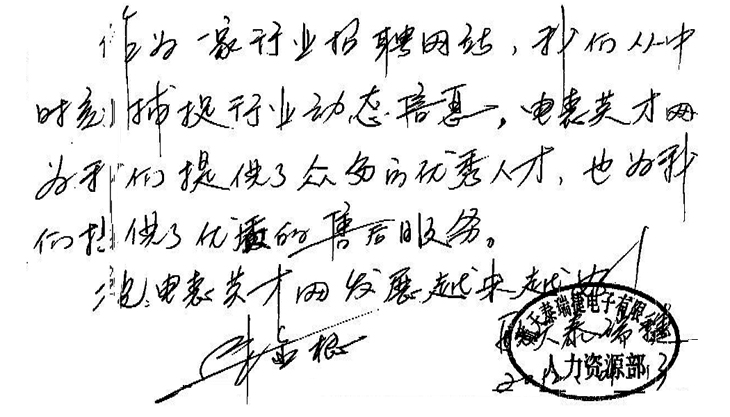 作为一家行业招聘网站，我们从中
时刻捕捉行业动态信息，电惠英才网
为我们提供了众多的优秀人才，也为我
们提供了优质的售后服务。
祝电惠英才网发展越来越好
天泰瑞捷电子有限
天泰瑞捷
人力资源部